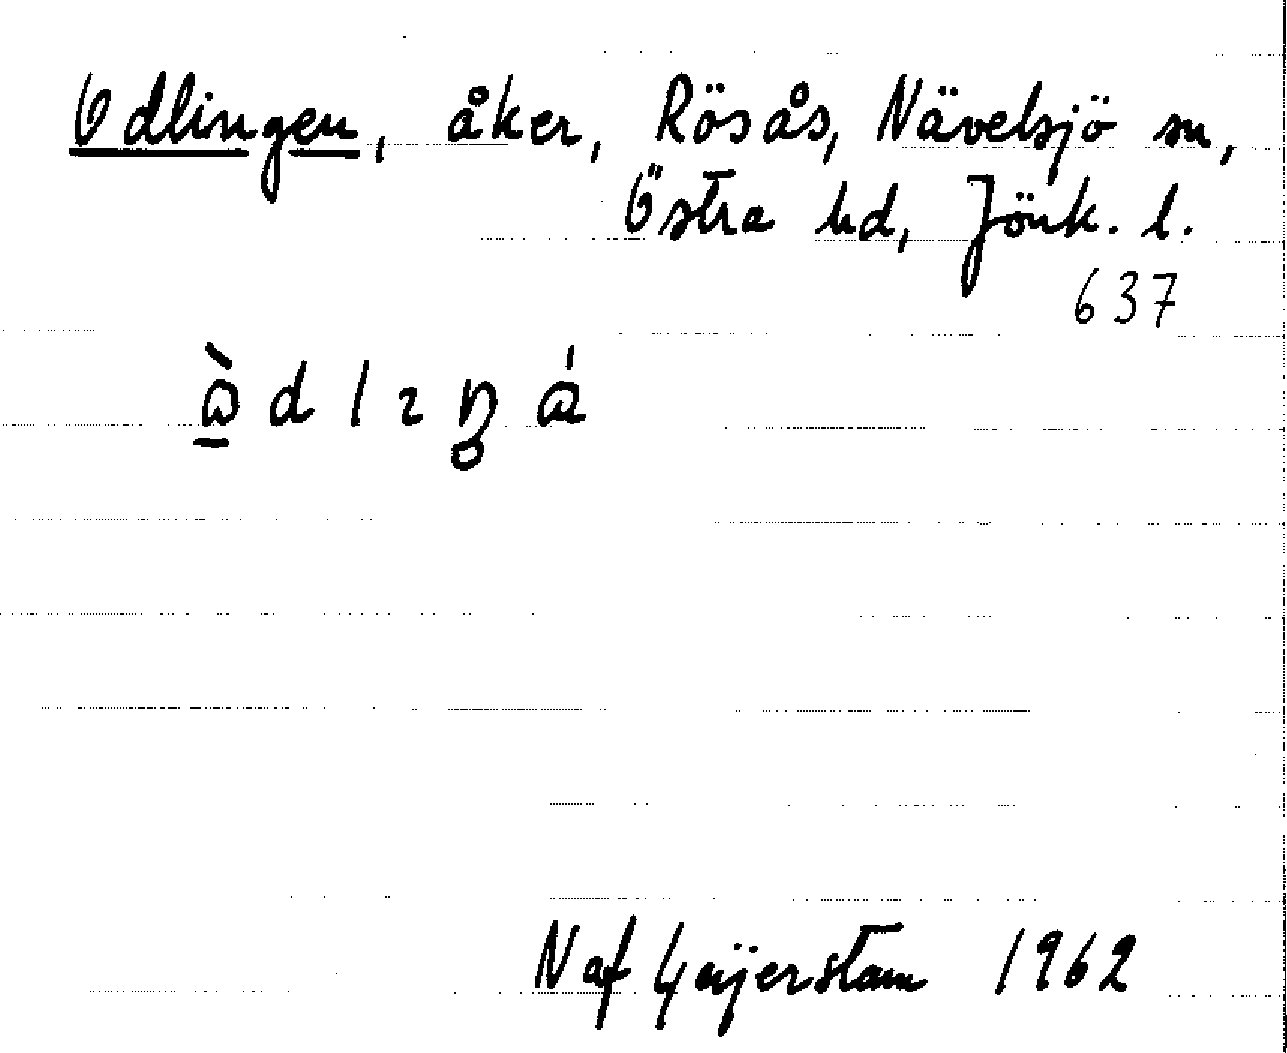 Odlingen, åker, Rösås, Nävelsjö sn,
Östra hd, Jönk. l.
637
N af Geijerstam 1962